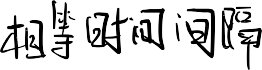 相等时间间隔